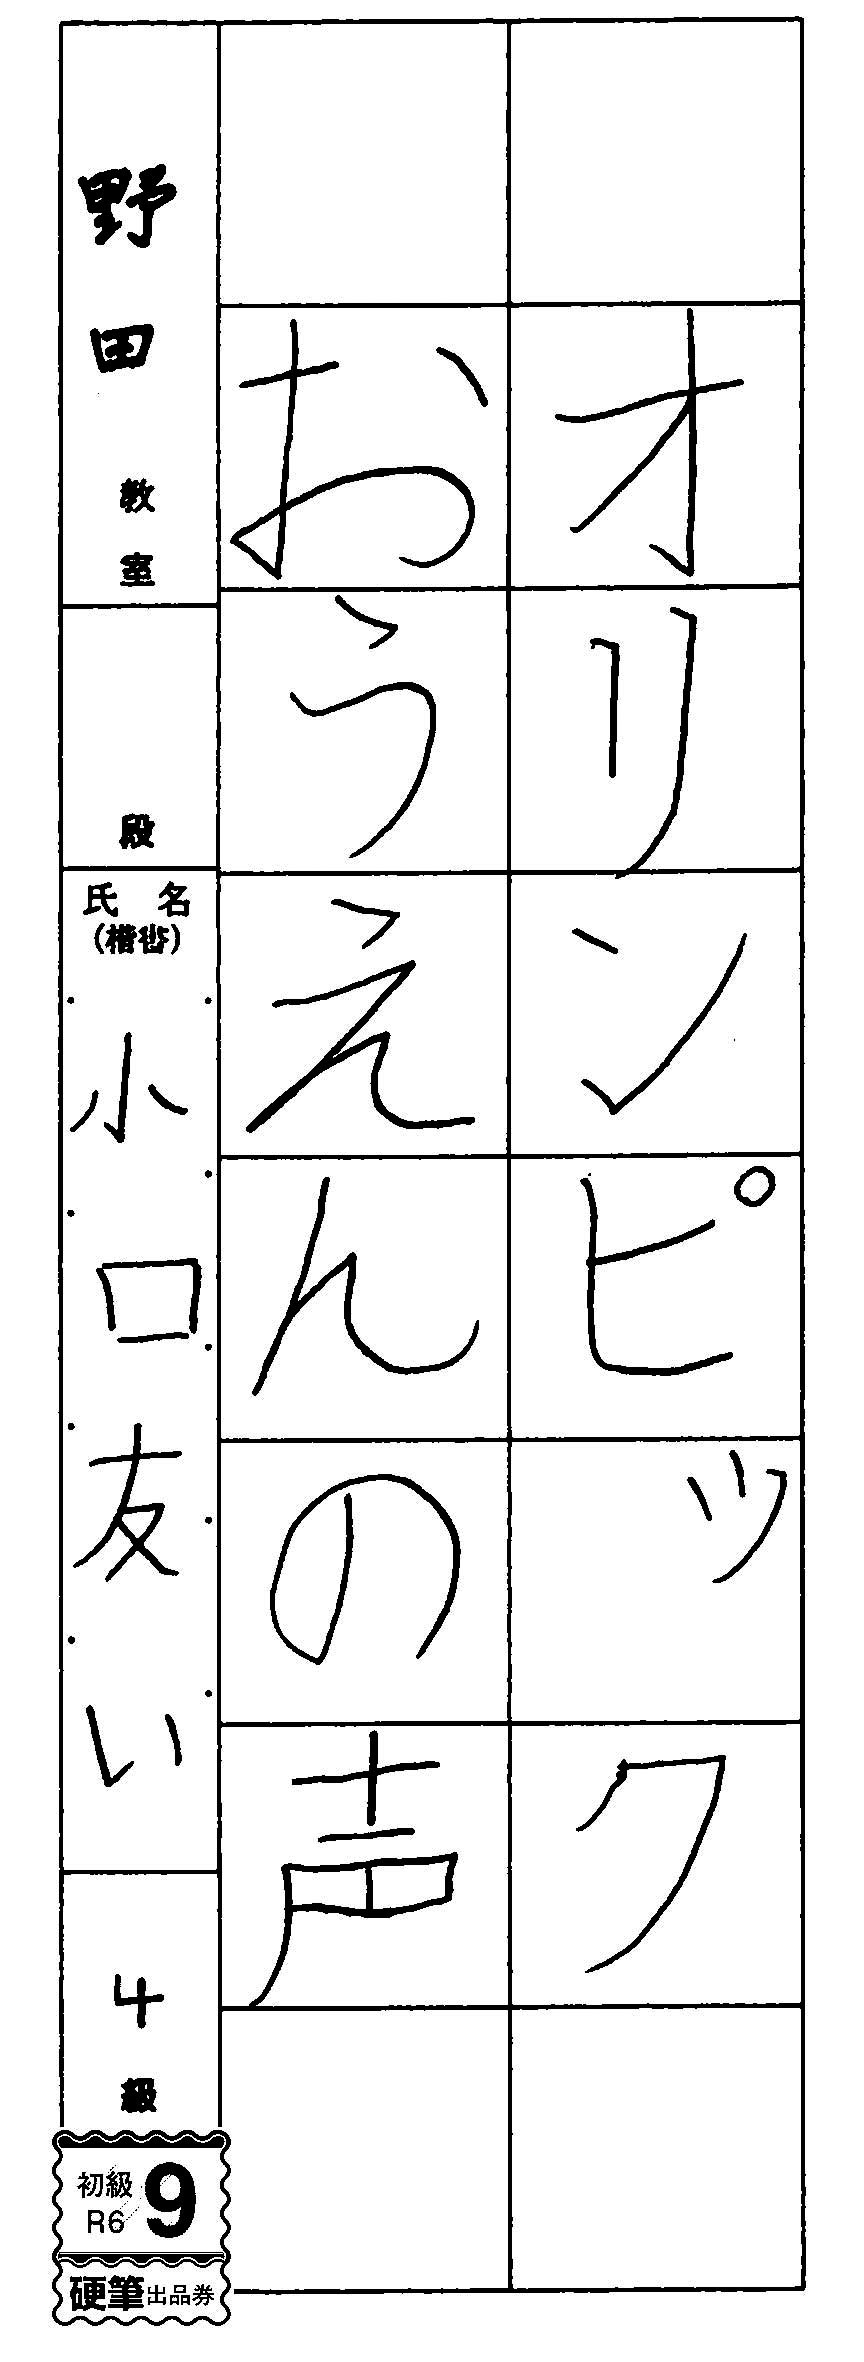 オリンピック
おうえんの声
野田教室
段
氏名
(楷書)
小口友い
4級
初級
R6
9
硬筆出品券